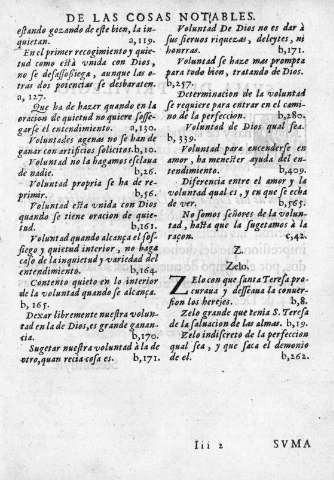 DE LAS COSAS NOTABLES.
estando gozando de este bien, la in-
quietan. a,119.
En el primer recogimiento y quie-
tud como està vnida con Dios,
no se desassossiega, aunque las o-
tras dos potencias se desbaraten.
a, 127.
Que ha de hazer quando en la
oracion de quietud no quiere sosse-
garse el entendimiento. a,130.
Voluntades agenas no se han de
ganar con artificios solicitos. b,10.
Voluntad no la hagamos esclaua
de nadie. b,26.
Voluntad propria se ha de re-
primir. b,56.
Voluntad està vnida con Dios
quando se tiene oracion de quie-
tud. b,161.
Voluntad quando alcança el sos-
siego y quietud interior, no haga
caso de la inquietud y variedad del
entendimiento. b,164.
Contento quieto en lo interior
de la voluntad quando se alcança.
b, 165.
Dexar libremente nuestra volun-
tad en la de Dios, es grande ganan-
cia. b,170.
Sugetar nuestra voluntad à la de
otro, quan recia cosa es. b,171.
Voluntad De Dios no es dar à
sus sieruos riquezas, deleytes, ni
honrras. b,171.
Voluntad se haze mas prompta
para todo bien, tratando de Dios.
b,257.
Determinacion de la voluntad
se requiere para entrar en el cami-
no de la perfeccion. b,280.
Voluntad de Dios qual sea.
b, 339.
Voluntad para encenderse en
amor, ha menester ayuda del en-
tendimiento. b,409.
Diferencia entre el amor y la
voluntad qual es, y en que se echa
de ver. b,565.
No somos señores de la volun-
tad, hasta que la sugetamos à la
raçon. c,42.
Z.
Zelo.
Zelo con que santa Teresa pro-
curaua y desseaua la conuer-
sion los herejes. b,8.
Zelo grande que tenia S. Teresa
de la saluacion de las almas. b,19.
Zelo indiscreto de la perfeccion
qual sea, y que saca el demonio
de el. b,262.
Iii 2 SVMA